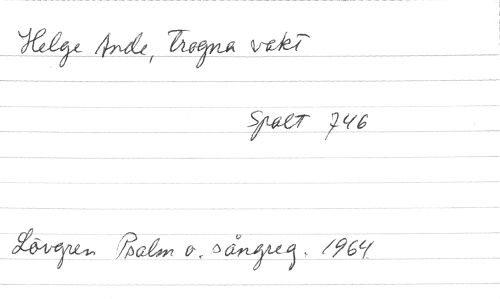 Helge Ande, trogna vakt
Spalt 746
Lövgren Psalm o. sångreg. 1964